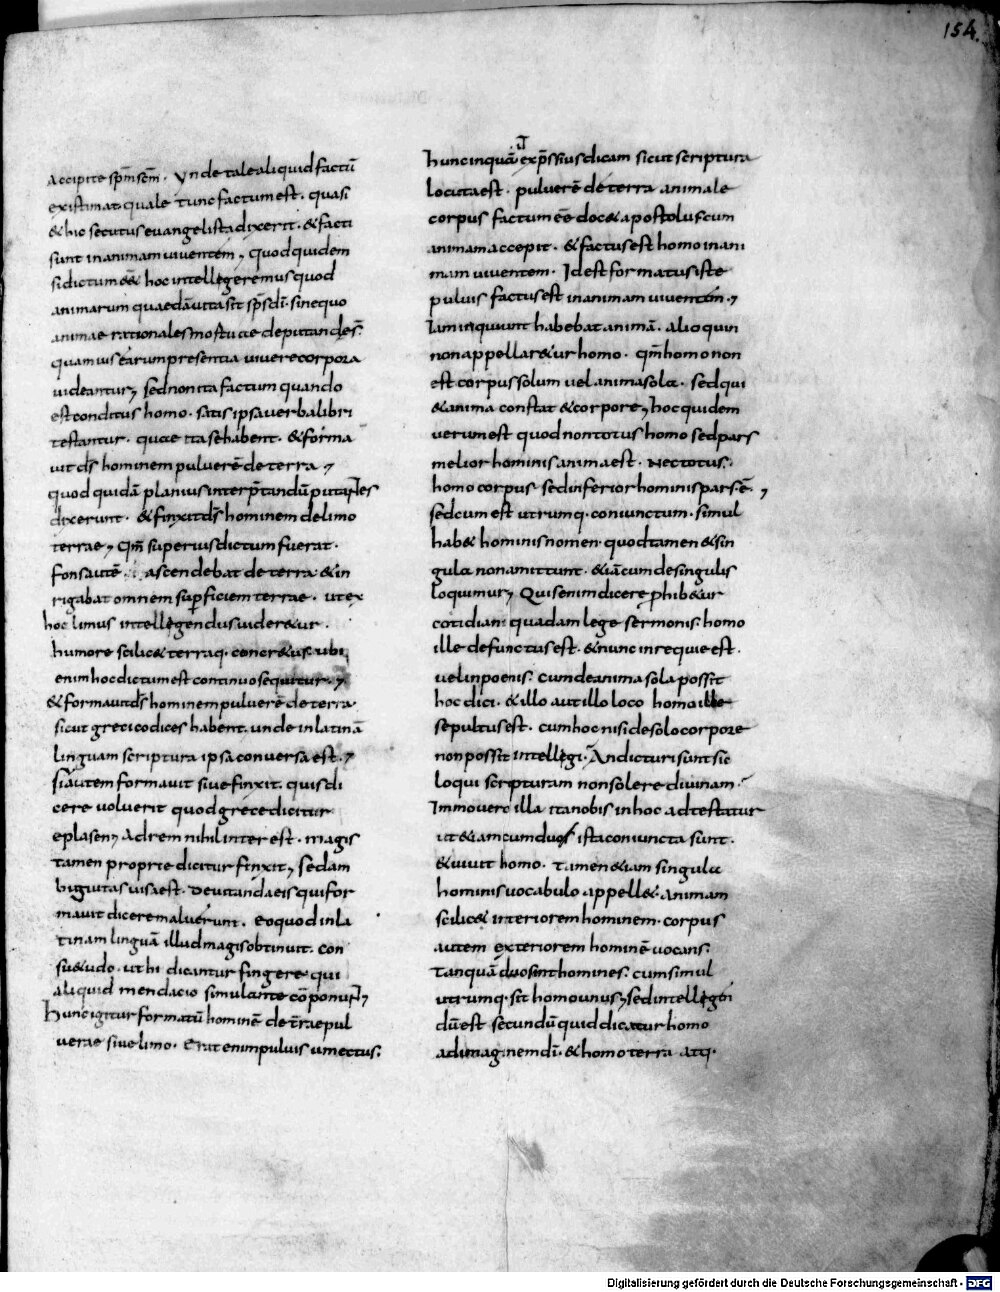 154.
accipite sp̄m sc̄m. Vnde tale aliquid factū
existimat quale tunc factum est. quasi
& hic secutus euangelista dixerit. & facti
sunt in animam uiuentem, quod quidem
si dictum eēt hoc intellegeremus quod
animarum quaedā uita sit sp̄s dī. sine quo
animae rationales mortuae deputandae s̄.
quamuis earum presentia uiuere corpora
uideantur, sed non ita factum quando
est conditus homo. satis ipsa uerba libri
testantur. quae ita se habent. & forma
uit ds̄ hominem puluerē de terra,
quod quidā planius interp̄tandū putantes
dixerunt. & finxit ds̄ hominem de limo
terrae, qm̄ superius dictum fuerat.
fons autē ascendebat de terra & in
rigabat omnem superficiem terrae. ut ex
hoc limus intellegendus uideretur.
humore scilicet terraq. concretus. ubi
enim hoc dictum est continuo sequitur.
& formauit ds̄ hominem puluerē de terra
sicut greci codices habent. unde in latinā
linguam scriptura ipsa conuersa est.
siue autem formauit siue finxit. quis di
cere uoluerit quod grece dicitur
eplasen, ad rem nihil interest. magis
tamen proprie dicitur finxit, sed am
biguitas uisa est. deuitanda eis qui for
mauit dicere maluerunt. eo quod in la
tinam linguā illud magis obtinuit. con
suetudo. ut hi dicantur fingere qui
aliquid mendacio simulante cōponunt,
hunc igitur formatū hominē de terrae pul
uerae siue limo. erat enim puluis umectus.
hunc inquā ut exp̄ssius dicam sicut scriptura
locuta est. puluerē de terra animale
corpus factum eē docet apostolus cum
animam accepit. & factus est homo in ani
mam uiuentem. Id est formatus iste
puluis factus est in animam uiuentem.
Iam inquiunt habebat animā. alioquin
non appellaretur homo. qm̄ homo non
est corpus solum uel anima sola. sed qui
& anima constat & corpore, hoc quidem
uerum est quod non totus homo sed pars
melior hominis anima est. nec totus
homo corpus sed inferior hominis pars ē.
sed cum est utrumq. coniunctum. simul
habet hominis nomen. quod tamen & sin
gula non amittunt. & iā cum de singulis
loquimur, Quis enim dicere p̄hibetur
cotidiani quadam lege sermonis. homo
ille defunctus est. & nunc in requie est.
uel in poenis. cum de anima sola possit
hoc dici. & illo aut illo loco homo ille
sepultus est. cum hoc nisi de solo corpore
non possit intellegi. An dicturi sunt sic
loqui scripturam non solere diuinam.
Immo uero illa ita nobis in hoc adtestatur
ut etiam cum duo ista coniuncta sunt.
& uiuit homo. tamen etiam singula
hominis uocabulo appellet. animam
scilicet interiorem hominem. corpus
autem exteriorem hominē uocans.
tanquā duo sint homines. cum simul
utrumq. sit homo unus, sed intellegen
dū est secundū quid dicatur homo
ad imaginem dī. & homo terra atq.
Digitalisierung gefördert durch die Deutsche Forschungsgemeinschaft - DFG